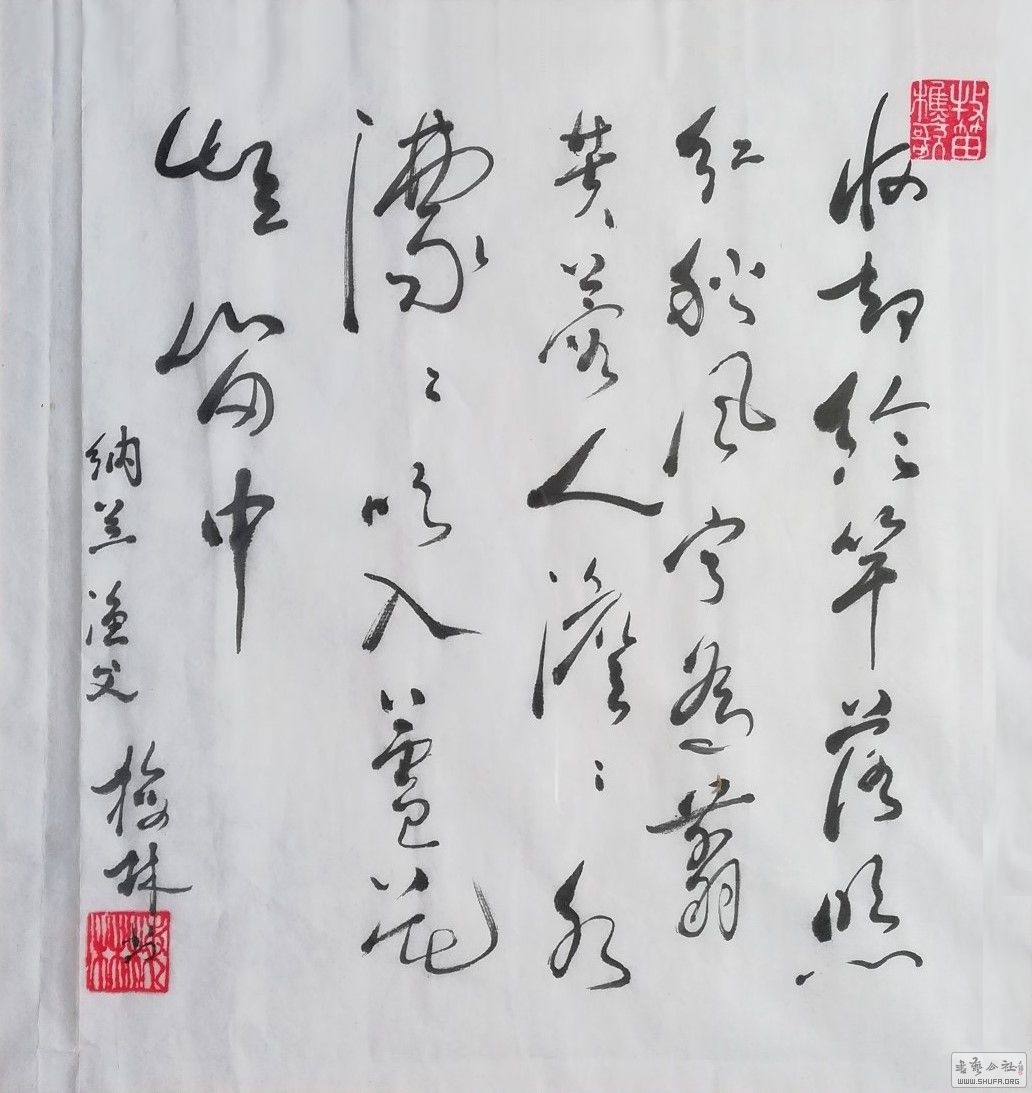 牧笛樵歌
收却纶竿落照
红秋风宁为翦
芙蓉人澹々水
濛々吹入蘆花
短笛中
纳兰渔父 梅林书
梅林
書藝公社
WWW.SHUFA.ORG